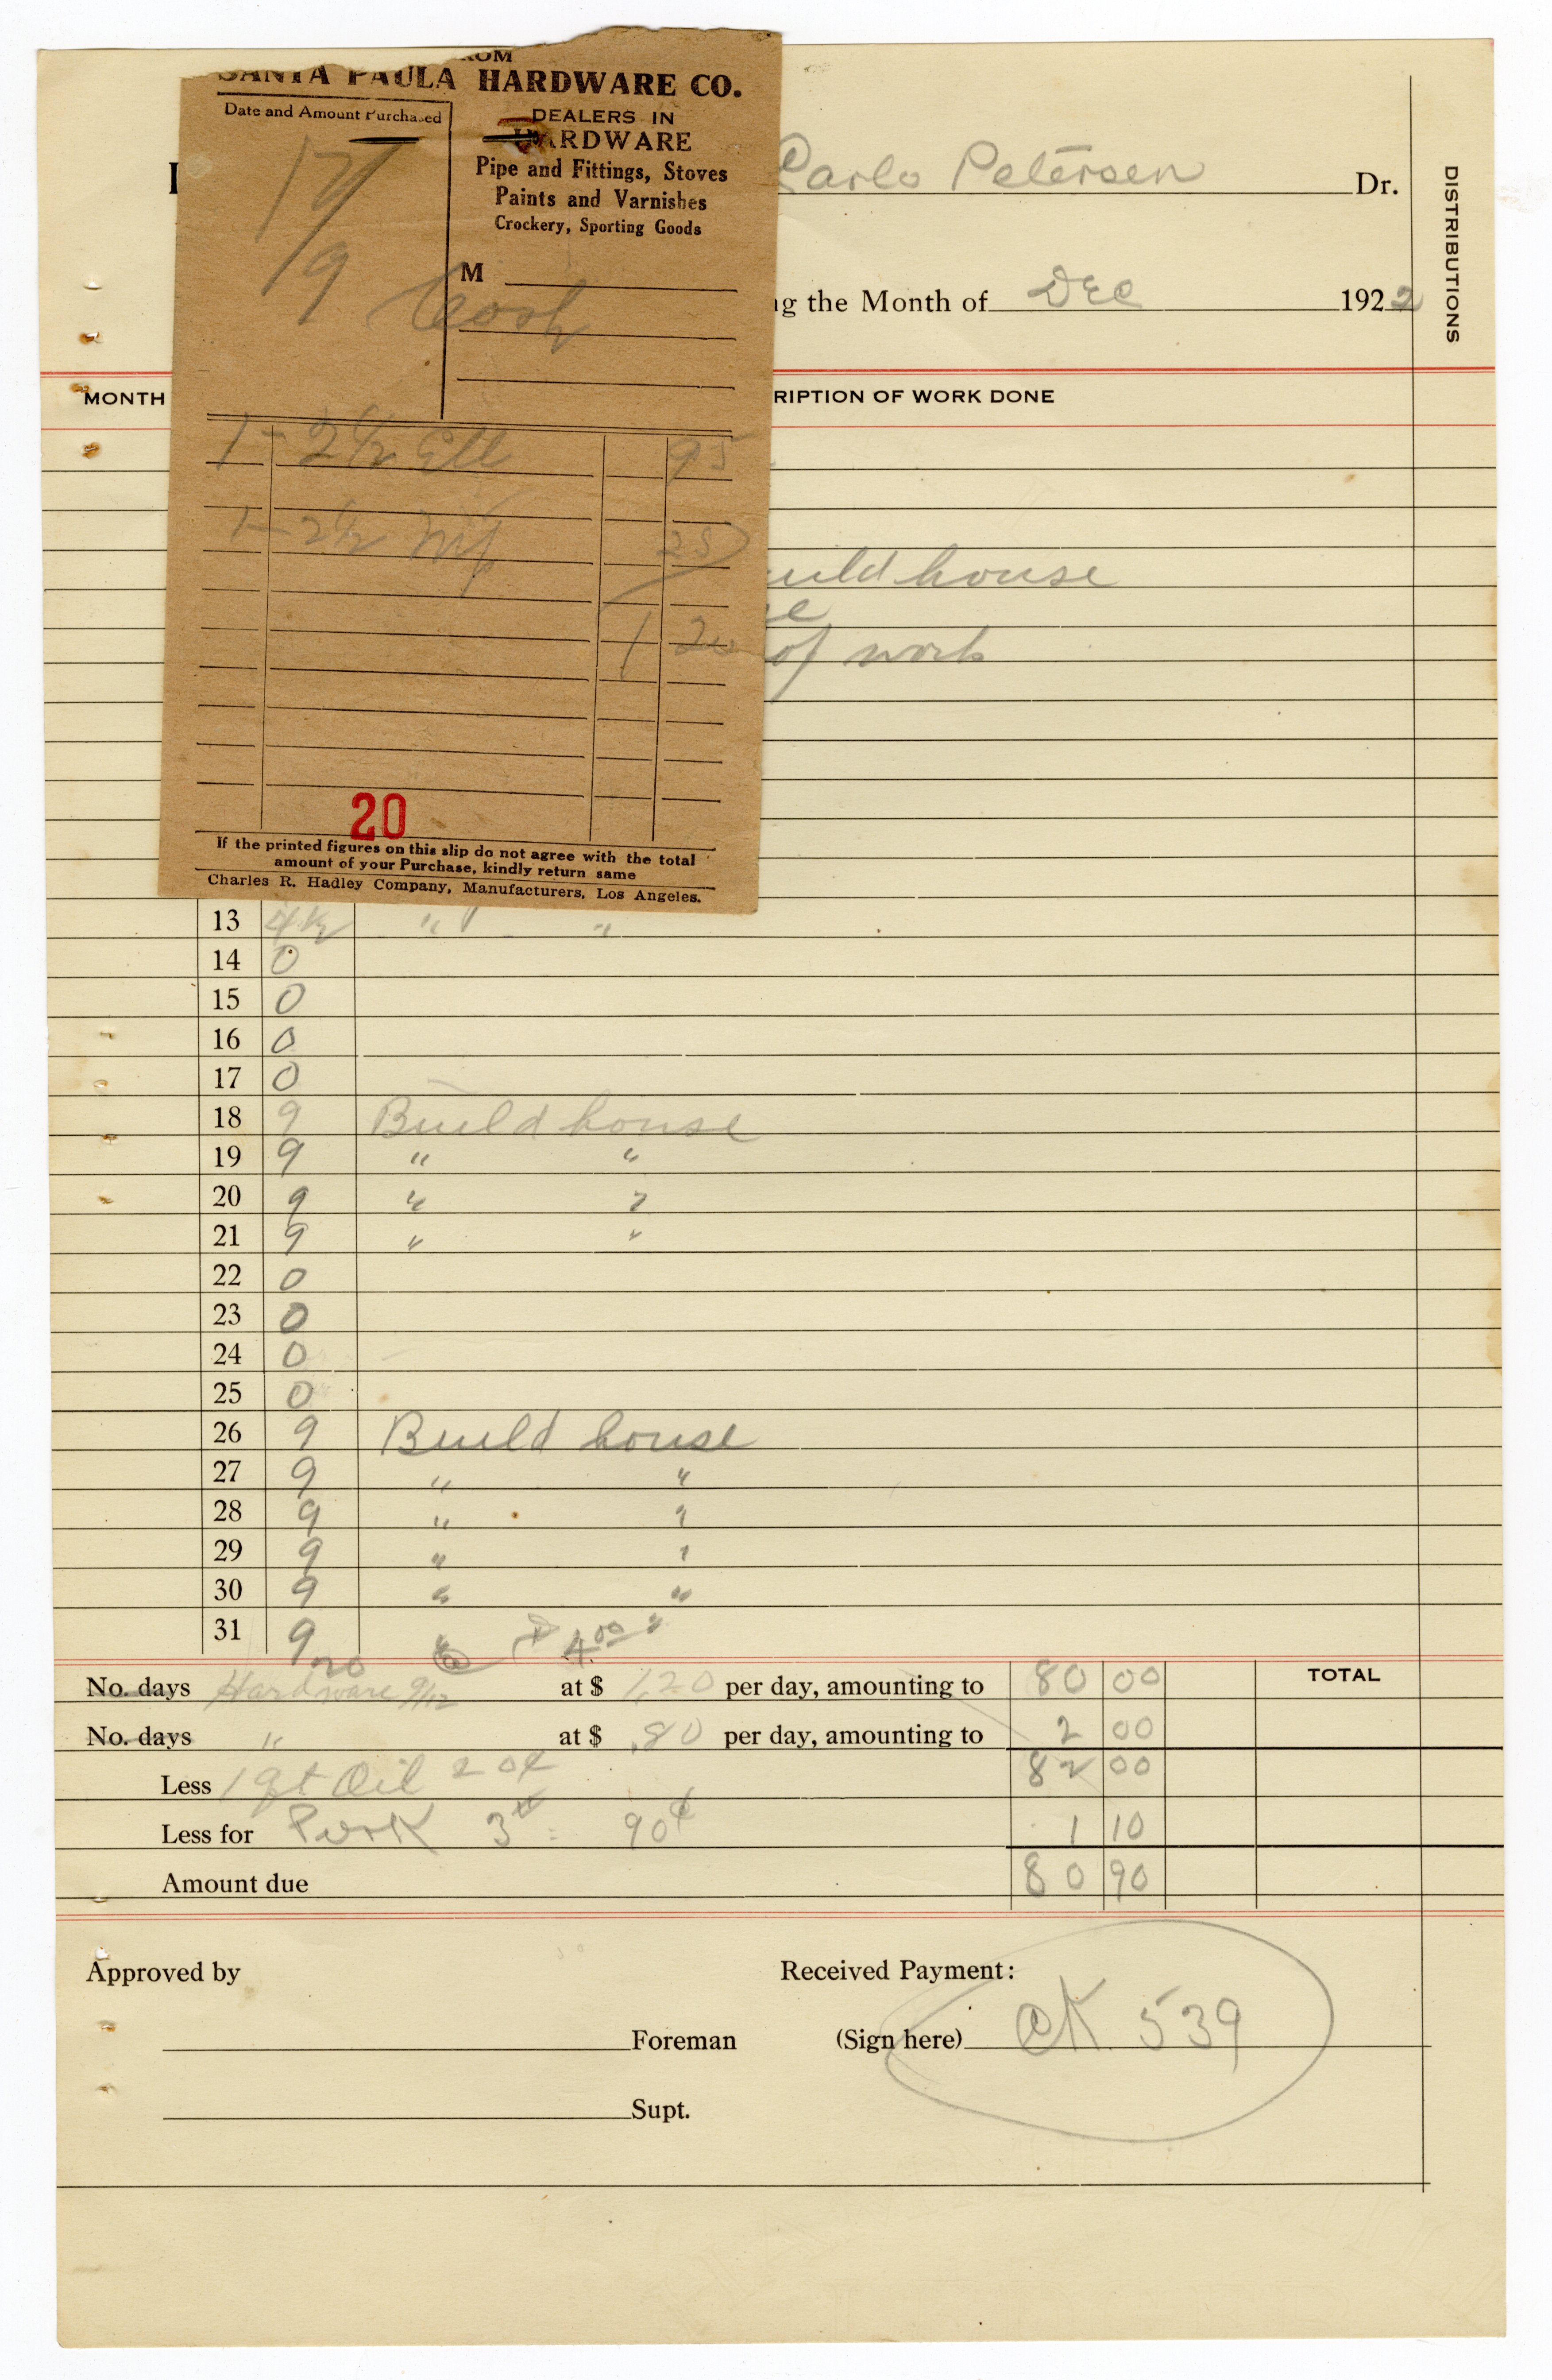 SANTA PAULA HARDWARE CO.
Date and Amount Purchased
DEALERS IN
HARDWARE
Pipe and Fittings, Stoves
Paints and Varnishes
Crockery, Sporting Goods
12/9
M
Cash
1 - 2 1/2 Ell 95
1 - 2 1/2 Nip 25
1 20
20
If the printed figures on this slip do not agree with the total
amount of your Purchase, kindly return same
Charles R. Hadley Company, Manufacturers, Los Angeles.
Carlo Petersen Dr.
g the Month of Dec 1922
DISTRIBUTIONS
MONTH
RIPTION OF WORK DONE
uild house
e
of work
13 4 1/2 " "
14 0
15 0
16 0
17 0
18 9 Build house
19 9 " "
20 9 " "
21 9 " "
22 0
23 0
24 0
25 0
26 9 Build house
27 9 " "
28 9 " "
29 9 " "
30 9 " "
31 9 " "
20 @ $ 4.00
No. days Hardware 9/12 at $ 1.20 per day, amounting to 80 00 TOTAL
No. days " at $ .80 per day, amounting to 2 00
Less 1 qt Oil 20¢ 82 00
Less for Pork 3# = 90¢ 1 10
Amount due 80 90
Approved by
Received Payment:
Foreman
(Sign here) CK 539
Supt.